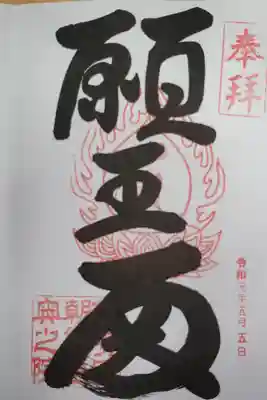 奉拝
願王殿
令和元年五月五日
奥之院